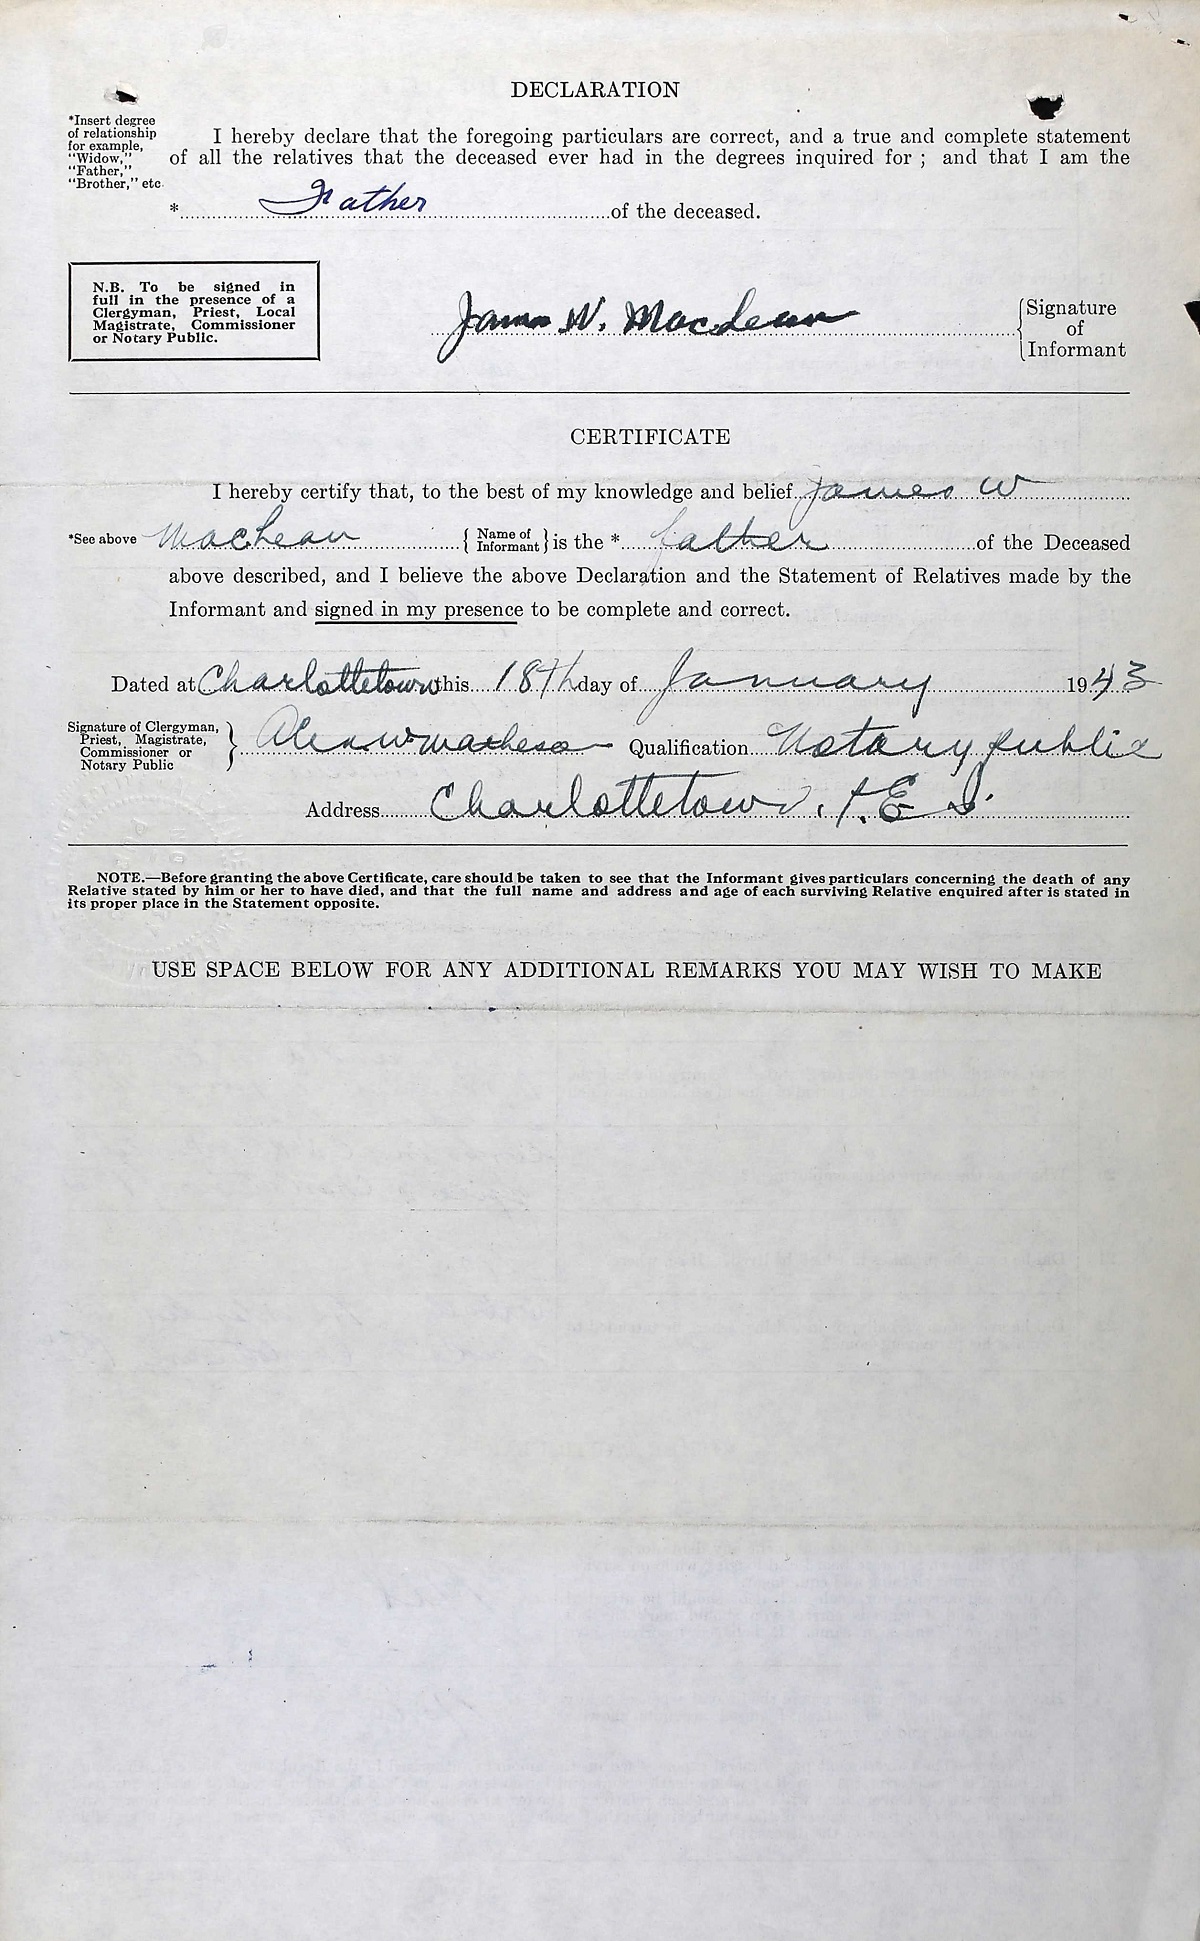 DECLARATION
*Insert degree
of relationship
for example,
"Widow,"
"Father,"
"Brother," etc.
I hereby declare that the foregoing particulars are correct, and a true and complete statement
of all the relatives that the deceased ever had in the degrees inquired for ; and that I am the
* Father of the deceased.
N.B. To be signed in
full in the presence of a
Clergyman, Priest, Local
Magistrate, Commissioner
or Notary Public.
James W. MacLean
Signature
of
Informant
CERTIFICATE
I hereby certify that, to the best of my knowledge and belief James W
*See above MacLean { Name of Informant } is the * father of the Deceased
above described, and I believe the above Declaration and the Statement of Relatives made by the
Informant and signed in my presence to be complete and correct.
Dated at Charlottetown this 18th day of January 1943
Signature of Clergyman,
Priest, Magistrate,
Commissioner or
Notary Public
Alex W Matheson Qualification Notary public
Address Charlottetown, P.E.I.
NOTE.—Before granting the above Certificate, care should be taken to see that the Informant gives particulars concerning the death of any
Relative stated by him or her to have died, and that the full name and address and age of each surviving Relative enquired after is stated in
its proper place in the Statement opposite.
USE SPACE BELOW FOR ANY ADDITIONAL REMARKS YOU MAY WISH TO MAKE